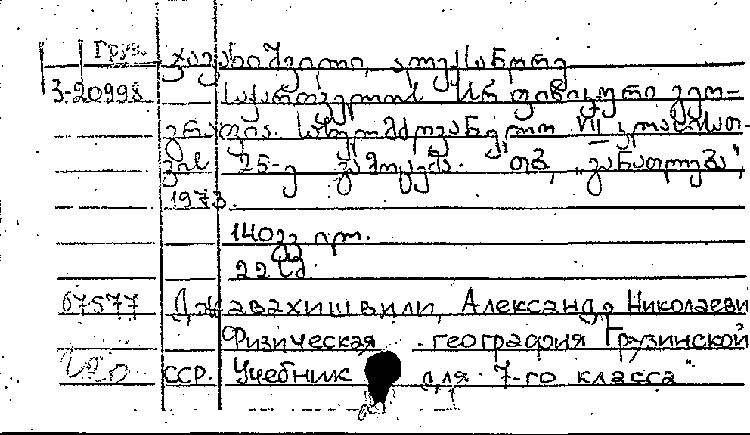 Груз. ჯავახიშვილი, ალექსანდრე
3-20998 საქართველოს სსრ ფიზიკური გეო-
გრაფია. სახელმძღვანელო VII კლასისათ-
ვის 25-ე გამოცემა. თბ, „განათლება",
1973.
140 გვ ილ.
22 კ.
67577 Джавахишвили, Александр Николаеви
Физическая география Грузинской
ССР. Учебник для 7-го класса"